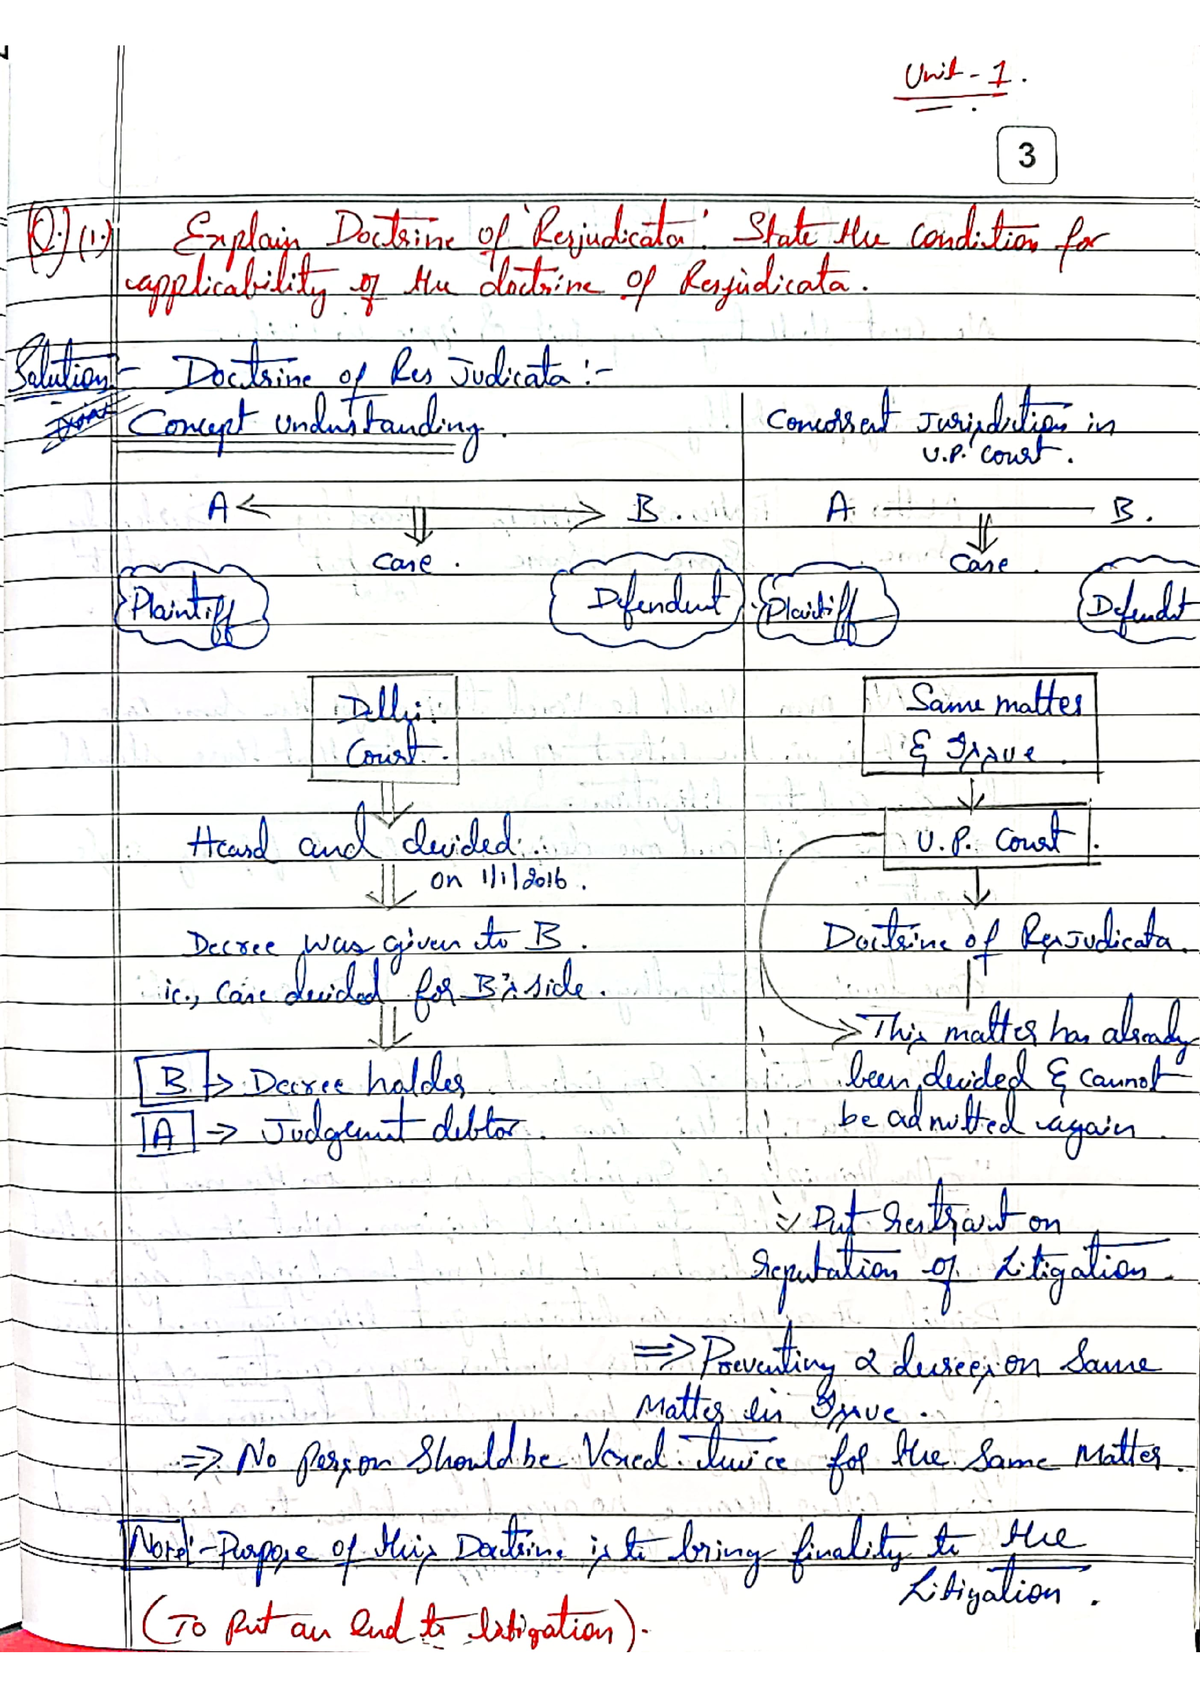 Unit - 1.
3
Q.) (1.) Explain Doctrine of 'Resjudicata'. State the condition for
applicability of the doctrine of Resjudicata.
Solution:- Doctrine of Res Judicata :-
Concept Understanding.
A B.
Case.
Plaintiff Defendent
Delhi
Court.
Heard and decided.
on 1/1/2016.
Decree was given to B.
ie., Case decided for B's side.
B. → Decree holder
A → Judgement debtor.
Concorrent Jurisdiction in
U.P. Court.
A. B.
Case
Plaintiff Defendt
Same matter
& Issue
U.P. Court.
Doctrine of Resjudicata.
This matter has already
been decided & cannot
be admitted again.
Put restraint on
reputation of Litigation.
⇒ Preventing 2 decrees on Same
Matter in Issue.
⇒ No person Should be Vexed twice for the Same Matter.
Note:- Purpose of this Doctrine is to bring finality to the
Litigation.
(To Put an End to litigation).